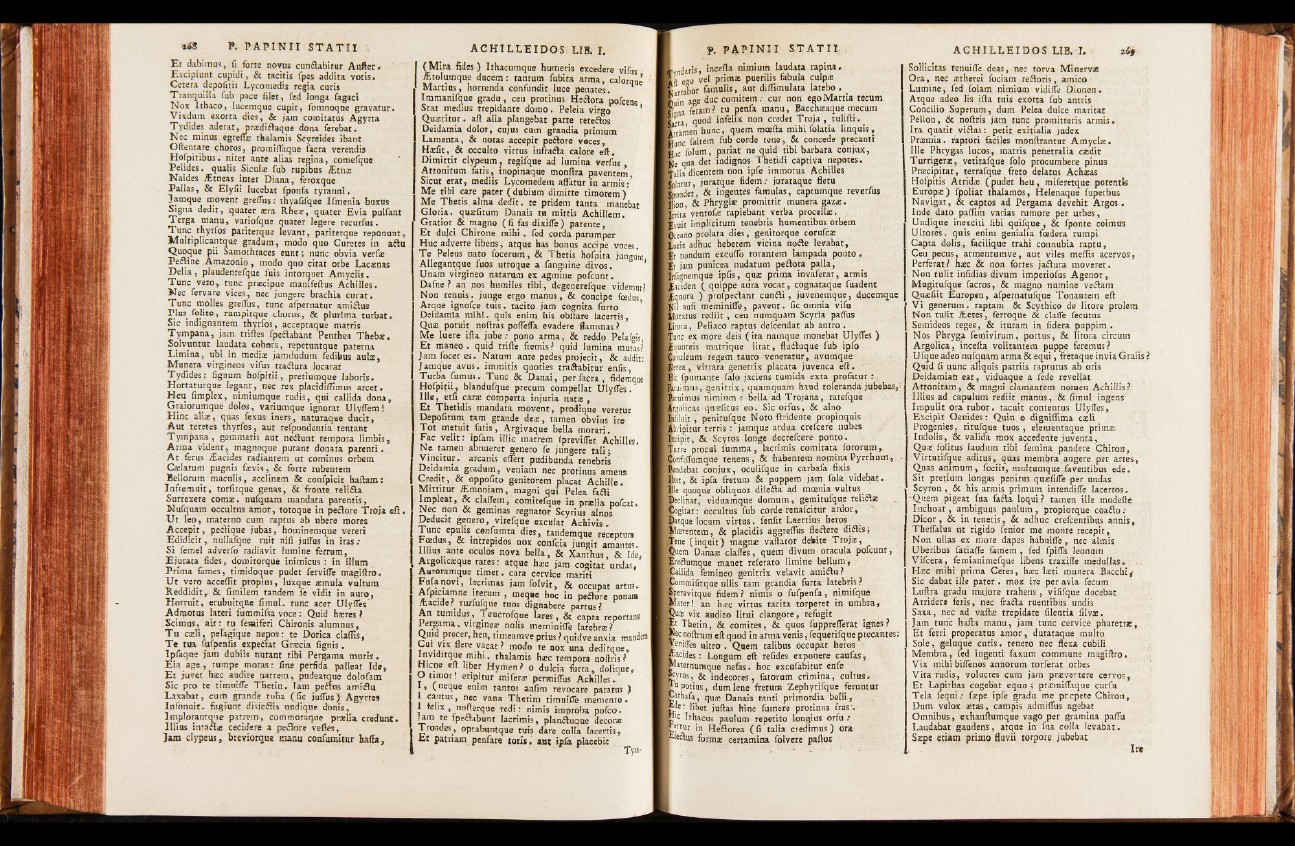 268 P. PAPINII STATII
Et dabimus, si forte novus cunctabitur Auster.
Excipiunt cupidi, & tacitis spes addita votis.
Cetera depositis Lycomedis regia curis
Tranquilla sub pace silet, sed longa sagaci
Nox Ithaco, lucemque cupit, somnoque gravatur.
Vixdum exorta dies, & jam comitatus Agyrta
Tydides aderat, prædictaque dona ferebat.
Nec minus egressæ thalamis Scyreides ibant
Ostentare choros, promissaque sacra verendis
Hospitibus. nitet ante alias regina, comesque
Pelides. qualis Siculæ sub rupibus Ætnæ
Naides Ætneas inter Diana, feroxque
Pallas, & Elysii lucebat sponsa tyranni.
Jamque movent gressus: thyasisque Ismenia buxus
Signa dedit, quater æra Rheæ, quater Evia pulsant
Terga manu, variosque quater legere recursus.
Tunc thyrsos pariterque levant, pariterque reponunt,
Multiplicantque gradum, modo quo Curetes in actu
Quoque pii Samothraces eunt; nunc obvia versæ
Pectine Amazonio, modo quo citat orbe Lacænas
Delia, plaudentesque suis intorquet Amyclis.
Tunc vero, tunc præcipue manifestus Achilles.
Nec servare vices, nec jungere brachia curat.
Tunc molles gressus, tunc aspernatur amictus
Plus solito, rumpitque choros, & plurima turbat.
Sic indignantem thyrsos, acceptaque matris
Tympana, jam tristes spectabant Penthea Thebæ.
Solvuntur laudata cohors, repetuntque paterna
Limina, ubi in mediæ jamdudum sedibus aulæ,
Munera virgineos visus tractura locarat
Tydides: signum hospitii, pretiumque laboris.
Hortaturque legant, nec rex placidissimus arcet.
Heu simplex, nimiumque rudis, qui callida dona,
Graiorumque dolos, variumque ignorat Ulyssem!
Hinc aliæ, quas sexus iners, naturaque ducit,
Aut teretes thyrsos, aut respondentia tentant
Tympana, gemmatis aut nectunt tempora limbis,
Arma vident, magnoque putant donata parenti.
At ferus Æacides radiantem ut cominus orbem
Cælatum pugnis sævis, & forte rubentem
Bellorum maculis, acclinem & conspicit hastam:
Infremuit, torsitque genas, & fronte relicta
Surrexere comæ. nusquam mandata parentis,
Nusquam occultus amor, totoque in pectore Troja est.
Ut leo, materno cum raptus ab ubere mores
Accepit, pectique jubas, hominemque vereri
Edidicit, nullasque ruit nisi jussus in iras:
Si semel adverso radiavit lumine ferrum,
Ejurata fides, domitorque inimicus: in illum
Prima fames, timidoque pudet servisse magistro.
Ut vero accessit propius, luxque æmula vultum
Reddidit, & similem tandem se vidit in auro,
Horruit, erubuitque simul. tunc acer Ulysses
Admotus lateri summissa voce: Quid hæres?
Scimus, ait: tu semiferi Chironis alumnus,
Tu cæli, pelagique nepos: te Dorica classis,
Te tua suspensis expectat Græcia signis.
Ipsaque jam dubiis nutant tibi Pergama muris.
Eia age, rumpe moras: sine perfida palleat Ide,
Et juvet hæc audire patrem, pudeatque dolosam
Sic pro te timuisse Thetin. Iam pectus amictu
Laxabat, cum grande tuba (sic jussus) Agyrtes
Insonuit. fugiunt disjectis undique donis,
Implorantque patrem, commotaque prælia credunt.
Illius intactæ cecidere a pectore vestes,
Jam clypeus, breviorque manu consumitur hasta,
ACHILLEIDOS LIB. I.
(Mira fides) Ithacumque humeris excedere visus
Ætolumque ducem: tantum subita arma, calorque
Martius, horrenda confundit luce penates.
Immanisque gradu, ceu protinus Hectora poscens,
Stat medius trepidante domo. Peleia virgo
Quæritur. ast alia plangebat parte retectos
Deidamia dolos, cujus cum grandia primum
Lamenta, & notas accepit pectore voces,
Hæsit, & occulto virtus infracta calore est.
Dimittit clypeum, regisque ad lumina versus,
Attonitum fatis, inopinaque monstra paventem,
Sicut erat, mediis Lycomedem affatur in armis:
Me tibi care pater (dubium dimitte timorem)
Me Thetis alma dedit. te pridem tanta manebat
Gloria. quæsitum Danais tu mittis Achillem.
Gratior & magno (si fas dixisse) parente,
Et dulci Chirone mihi. sed corda parumper
Huc adverte libens, atque has bonus accipe voces.
Te Peleus nato socerum, & Thetis hospita jungunt,
Allegantque suos utroque a sanguine divos.
Unam virgineo natarum ex agmine poscunt.
Dasne? an nos humiles tibi, degeneresque videmur?
Non renuis. junge ergo manus, & concipe fœdus,
Atque ignosce tuis. tacito jam cognita furto
Deidamia mihi. quis enim his obstare lacertis,
Quæ potuit nostras possessa evadere flammas?
Me luere ista jube: pono arma, & reddo Pelasgis,
Et maneo. quid triste fremis? quid lumina mutas?
Jam socer es. Natum ante pedes projecit, & addit:
Jamque avus. immitis quoties tractabitur ensis,
Turba sumus. Tunc & Danai, per sacra, fidemque
Hospitii, blandusque precum compellat Ulysses.
Ille, etsi caræ comperta injuria natæ,
Et Thetidis mandata movent, prodique veretur
Depositum tam grande deæ, tamen obvius ire
Tot metuit fatis, Argivaque bella morari.
Fac velit: ipsam illic matrem sprevisset Achilles.
Ne tamen abnueret genero se jungere tali;
Vincitur. arcanis effert pudibunda tenebris
Deidamia gradum, veniam nec protinus amens
Credit, & opposito genitorem placat Achille.
Mittitur Æmoniam, magni qui Pelea facti
Impleat, & classem, comitesque in prælia poscat.
Nec non & geminas regnator Scyrius alnos
Deducit genero, viresque excusat Achivis.
Tunc epulis consumta dies, tandemque receptum
Fœdus, & intrepidos nox conscia jungit amantes.
Illius ante oculos nova bella, & Xanthus, & Ide,
Argolicæque rates: atque hæc jam cogitat undas,
Auroramque timet. cara cervice mariti
Fusa novi, lacrimas jam solvit, & occupat artus.
Aspiciamne iterum, meque hoc in pectore ponam
Æacide? rursusque tuos dignabere partus?
An tumidus, Teucrosque lares, & capta reportans
Pergama, virgineæ nolis meminisse latebræ?
Quid precer, heu, timeamve prius? quidve anxia mandem
Cui vix flere vacat? modo te nox una deditque,
Inviditque mihi. thalamis hæc tempora nostris?
Hicne est liber Hymen? o dulcia furta, dolique,
O timor! eripitur miseræ permissus Achilles.
I, (neque enim tantos ausim revocare paratus)
I cautus, nec vana Thetim timuisse memento.
I felix, nosterque redi: nimis improba posco.
Jam te spectabunt lacrimis, planctuque decoræ
Troades, optabuntque tuis dare colla lacertis,
Et patriam pensare toris. aut ipsa placebit
Tyn-
P. PAPINII STATII
Tyndaris, incesta nimium laudata rapina.
Ast ego vel primæ puerilis fabula culpæ
Narrabor famulis, aut dissimulata latebo.
Quin age duc comitem: cur non ego Martia tecum
Signa feram? tu pensa manu, Bacchæaque mecum
Sacra, quod infelix non credet Troja, tulisti.
Attamen hunc, quem mœsta mihi solatia linquis,
Hunc saltem sub corde tene, & concede precanti
Hoc solum, pariat ne quid tibi barbara conjux,
Ne qua det indignos Thetidi captiva nepotes.
Talia dicentem non ipse immotus Achilles
Solatur, juratque fidem: jurataque fletu
Spondet, & ingentes famulas, captumque reversus
Ilion, & Phrygiæ promittit munera gazæ.
Irrita ventosæ rapiebant verba procellæ.
Exuit implicitum tenebris humentibus orbem
Oceano prolata dies, genitorque coruscæ
Lucis adhuc hebetem vicina nocte levabat,
Et nondum excusso rorantem lampada ponto.
Et jam punicea nudatum pectora palla,
Insignemque ipsis, quæ prima invaserat, armis
Æaciden (quippe aura vocat, cognataque suadent
Æquora) prospectant cuncti, juvenemque, ducemque
Nil ausi meminisse, pavent. sic omnia visu
Mutatus rediit, ceu numquam Scyria passus
Litora, Peliaco raptus descendat ab antro.
Tunc ex more deis (ita namque monebat Ulysses)
Æquoreis matrique litat, fluctuque sub ipso
Cæruleum regem tauro veneratur, avumque
Nerea, vittata genetrix placata juvenca est.
Hic spumante salo jaciens tumida exta profatur:
Paruimus, genitrix, quamquam haud toleranda jubebas,
Paruimus nimium: bella ad Trojana, ratesque
Argolicas quæsitus eo. Sic orsus, & alno
Insiluit, penitusque Noto stridente propinquis
Abripitur terris: jamque ardua crescere nubes
Incipit, & Scyros longe decrescere ponto.
Turre procul summa, lacrimis comitata sororum,
Confessumque tenens, & habentem nomina Pyrrhum,
Pendebat conjux, oculisque in carbasa fixis
Ibat, & ipsa fretum & puppem jam sola videbat.
Ille quoque obliquos dilecta ad mœnia vultus
Declinat, viduamque domum, gemitusque relictæ
Cogitat: occultus sub corde renascitur ardor,
Datque locum virtus. sensit Laertius heros
Mærentem, & placidis aggressus flectere dictis;
Tene (inquit) magnæ vastator debite Trojæ,
Quem Danaæ classes, quem divum oracula poscunt,
Erectumque manet reserato limine bellum,
Callida femineo genitrix velavit amictu?
Commisitque ullis tam grandia furta latebris?
Speravitque fidem? nimis o suspensa, nimisque
Mater! an hæc virtus tacita torperet in umbra,
Quæ vix audito litui clangore, refugit
Et Thetin, & comites, & quos suppresserat ignes?
Nec nostrum est quod in arma venis, sequerisque precantes:
Venisses ultro. Quem talibus occupat heros
Æacides: Longum est resides exponere causas,
Maternumque nefas. hoc excusabitur ense
Scyros, & indecores, fatorum crimina, cultus.
Tu potius, dum lene fretum Zephyrisque feruntur
Carbasa, quæ Danais tanti primordia belli,
Ede: libet justas hinc sumere protinus iras.
Hic Ithacus paulum repetito longius orsu:
Fertur in Hectorea (si talia credimus) ora
Electus formæ certamina solvere pastor
ACHILLEIDOS LIB. I. 269
Sollicitas tenuisse deas, nec torva Minervæ
Ora, nec ætherei sociam rectoris, amico
Lumine, sed solam nimium vidisse Dionen.
Atque adeo lis ista tuis exorta sub antris
Concilio Superum, dum Pelea dulce maritat
Pelion, & nostris jam tunc promitteris armis.
Ira quatit victas: petit exitialia judex
Præmia. raptori faciles monstrantur Amyclæ.
Ille Phrygas lucos, matris penetralia cædit
Turrigeræ, vetitasque solo procumbere pinus
Præcipitat, terrasque freto delatus Achæas
Hospitis Atridæ (pudet heu, miseretque potentis
Europæ) spoliat thalamos, Helenaque superbus
Navigat, & captos ad Pergama devehit Argos.
Inde dato passim varias rumore per urbes,
Undique inexciti sibi quisque, & sponte coimus
Ultores. quis enim genialia fœdera rumpi
Capta dolis, facilique trahi connubia raptu,
Ceu pecus, armentumve, aut viles messis acervos,
Perferat? hæc & non fortes jactura moveret.
Non tulit insidias divum imperiosus Agenor,
Mugitusque sacros, & magno numine vectam
Quæsiit Europen, aspernatusque Tonantem est
Vi generum. raptam & Scythico de litore prolem
Non tulit Æetes, ferroque & classe secutus
Semideos reges, & ituram in sidera puppim.
Nos Phryga semivirum, portus, & litora circum
Argolica, incesta volitantem puppe feremus?
Usque adeo nusquam arma & equi, fretaque invia Graiis?
Quid si nunc aliquis patriis rapturus ab oris
Deidamian eat, viduaque a sede revellat
Attonitam, & magni clamantem nomen Achillis?
Illius ad capulum rediit manus, & simul ingens
Impulit ora rubor. tacuit contentus Ulysses,
Excipit Oenides: Quin o dignissima cæli
Progenies, ritusque tuos, elementaque primæ
Indolis, & valida mox accedente juventa,
Quæ solitus laudum tibi semina pandere Chiron,
Virtutisque aditus, quas membra augere per artes,
Quas animum, sociis, multumque faventibus ede.
Sit pretium longas penitus quæsisse per undas
Scyron, & his armis primum intendisse lacertos.
Quem pigeat sua facta loqui? tamen ille modeste
Inchoat, ambiguus paulum, propiorque coacto:
Dicor, & in teneris, & adhuc crescentibus annis,
Thessalus ut rigido senior me monte recepit,
Non ullas ex more dapes habuisse, nec almis
Uberibus satiasse famem, sed spissa leonum
Viscera, semianimesque libens traxisse medullas.
Hæc mihi prima Ceres, hæc læti munera Bacchi,
Sic dabat ille pater. mox ire per avia secum
Lustra gradu majore trahens, visisque docebat
Arridere feris, nec fracta ruentibus undis
Saxa, nec ad vastæ trepidare silentia silvæ.
Jam tunc hasta manu, jam tunc cervice pharetræ,
Et ferri properatus amor, durataque multo
Sole, geluque cutis. tenero nec flexa cubili
Membra, sed ingenti saxum commune magistro.
Vix mihi bissenos annorum torserat orbes
Vita rudis, volucres cum jam prævertere cervos,
Et Lapithas cogebat equo; præmissaque cursu
Tela sequi: sæpe ipse gradu me præpete Chiron,
Dum velox ætas, campis admissus agebat
Omnibus, exhaustumque vago per gramina passu
Laudabat gaudens, atque in sua colla levabat.
Sæpe etiam primo fluvii torpore jubebat
Ire